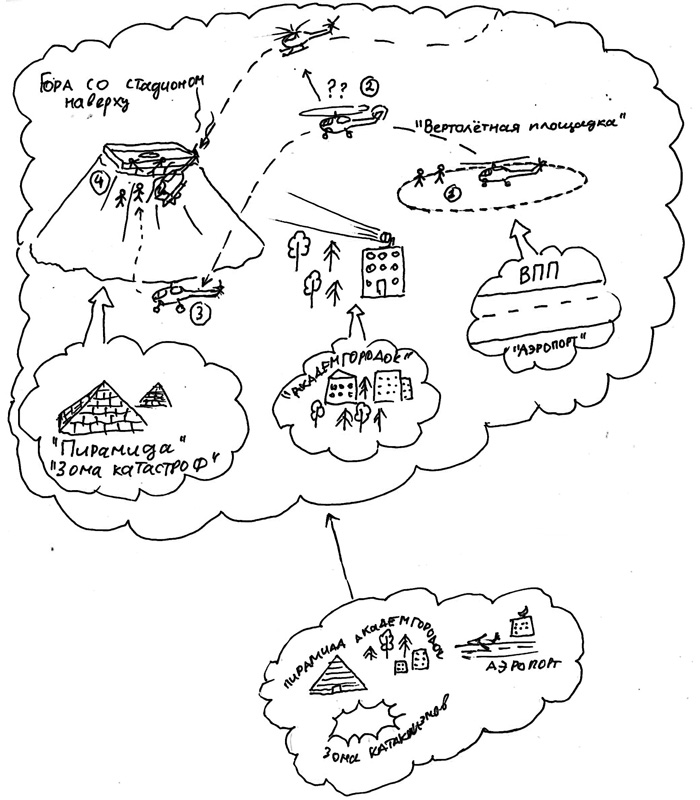 Гора со стадионом
наверху
?? ②
"Вертолётная площадка"
④
①
ВПП
"АЭРОПОРТ"
③
"АКАДЕМГОРОДОК"
"Пирамида"
"Зона катастроф"
ПИРАМИДА
АКАДЕМГОРОДОК
АЭРОПОРТ
Зона катаклизмов